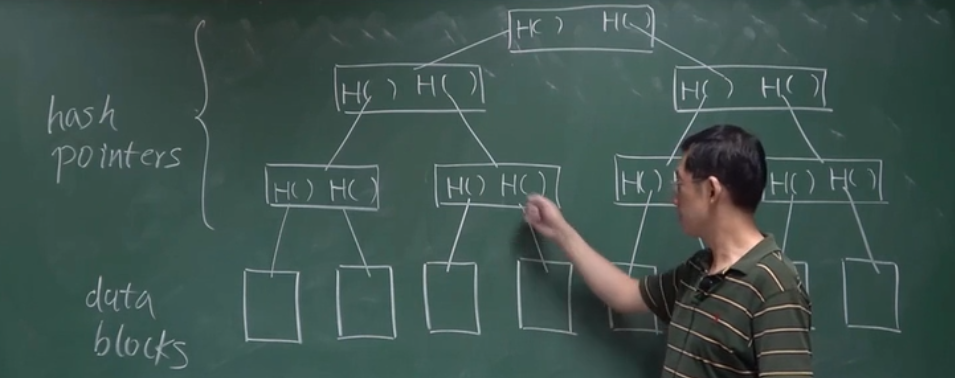 H( ) H( )
H( ) H( ) H( ) H( )
hash
pointers
H( ) H( ) H( ) H( ) H( ) H( ) H( )
data
blocks